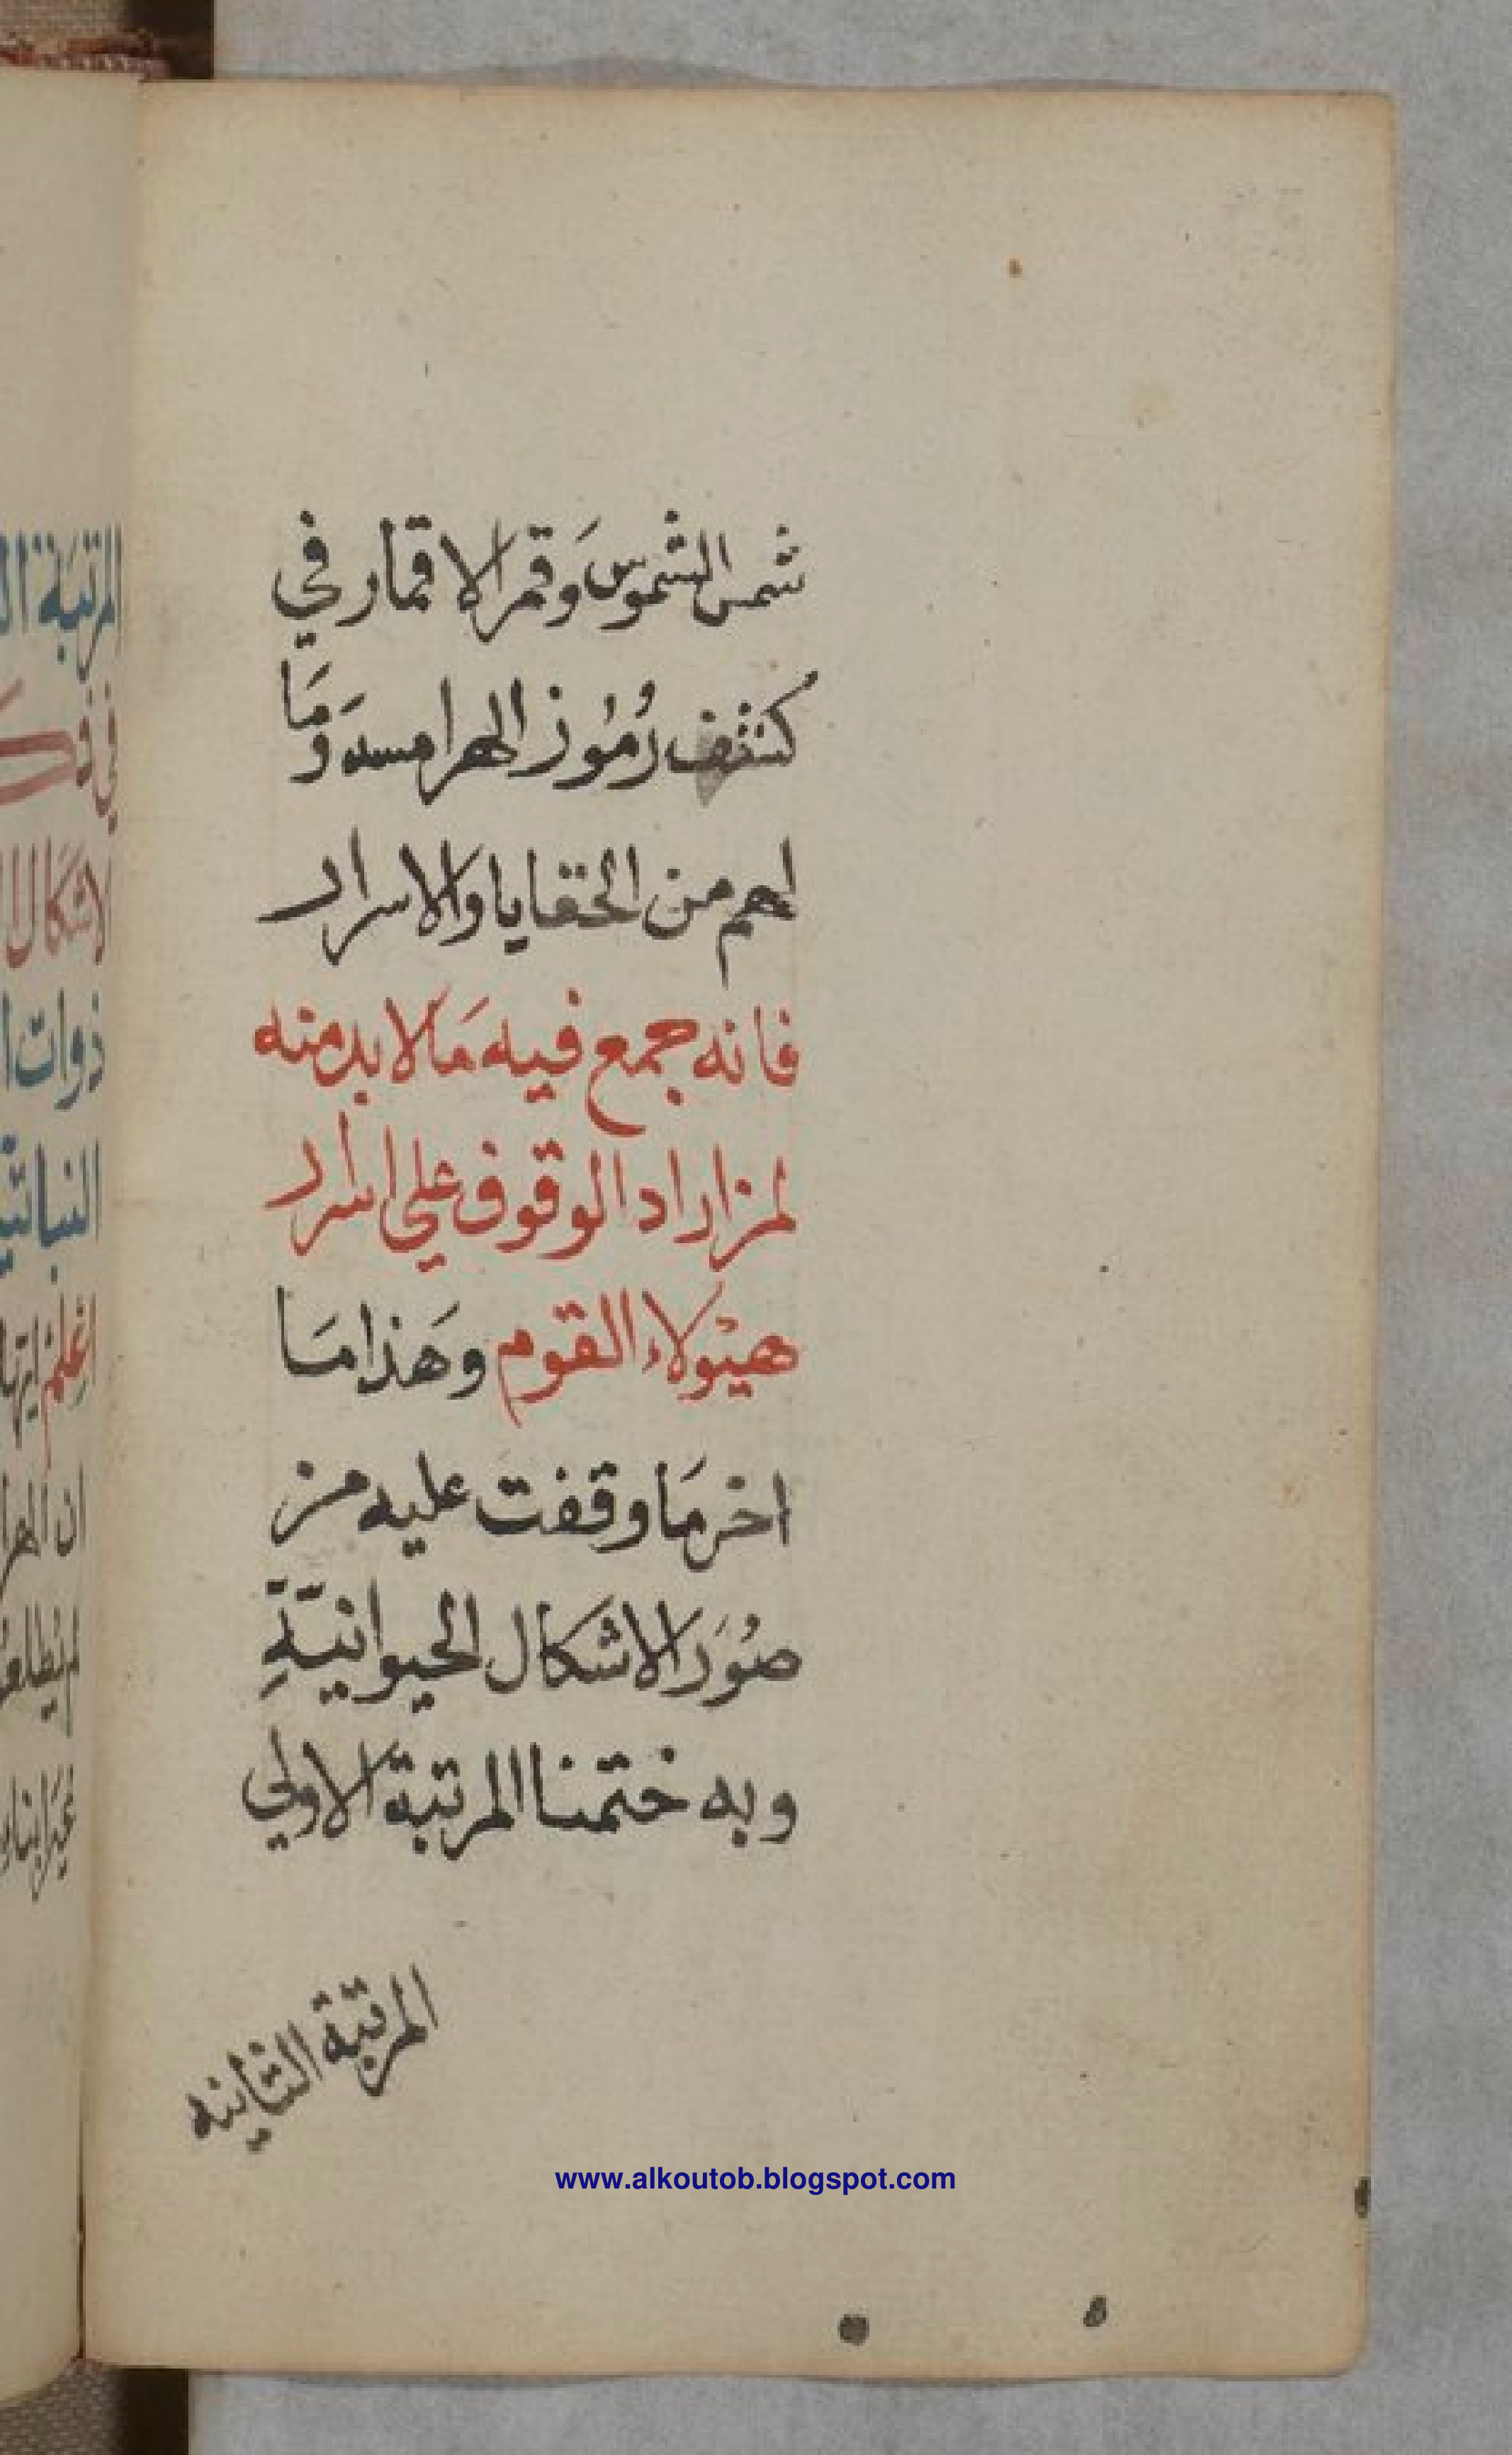 شمس الشموس وَقمر الاقمار في
كشف رُمُوز الهرامسه وَمَا
لهم من الخفايا والاسرار
فانه جمع فيه مَالا بد منه
لمن اراد الوقوف علي اسرار
هيئولاء القوم وهَذا مَا
اخر مَا وقفت عليه من
صُوَر الاشكال الحيوانيّةِ
وبه ختمنا المرتبة الاولي
المرتبة الثانيه
www.alkoutob.blogspot.com
المرتبَة
في
ذوات